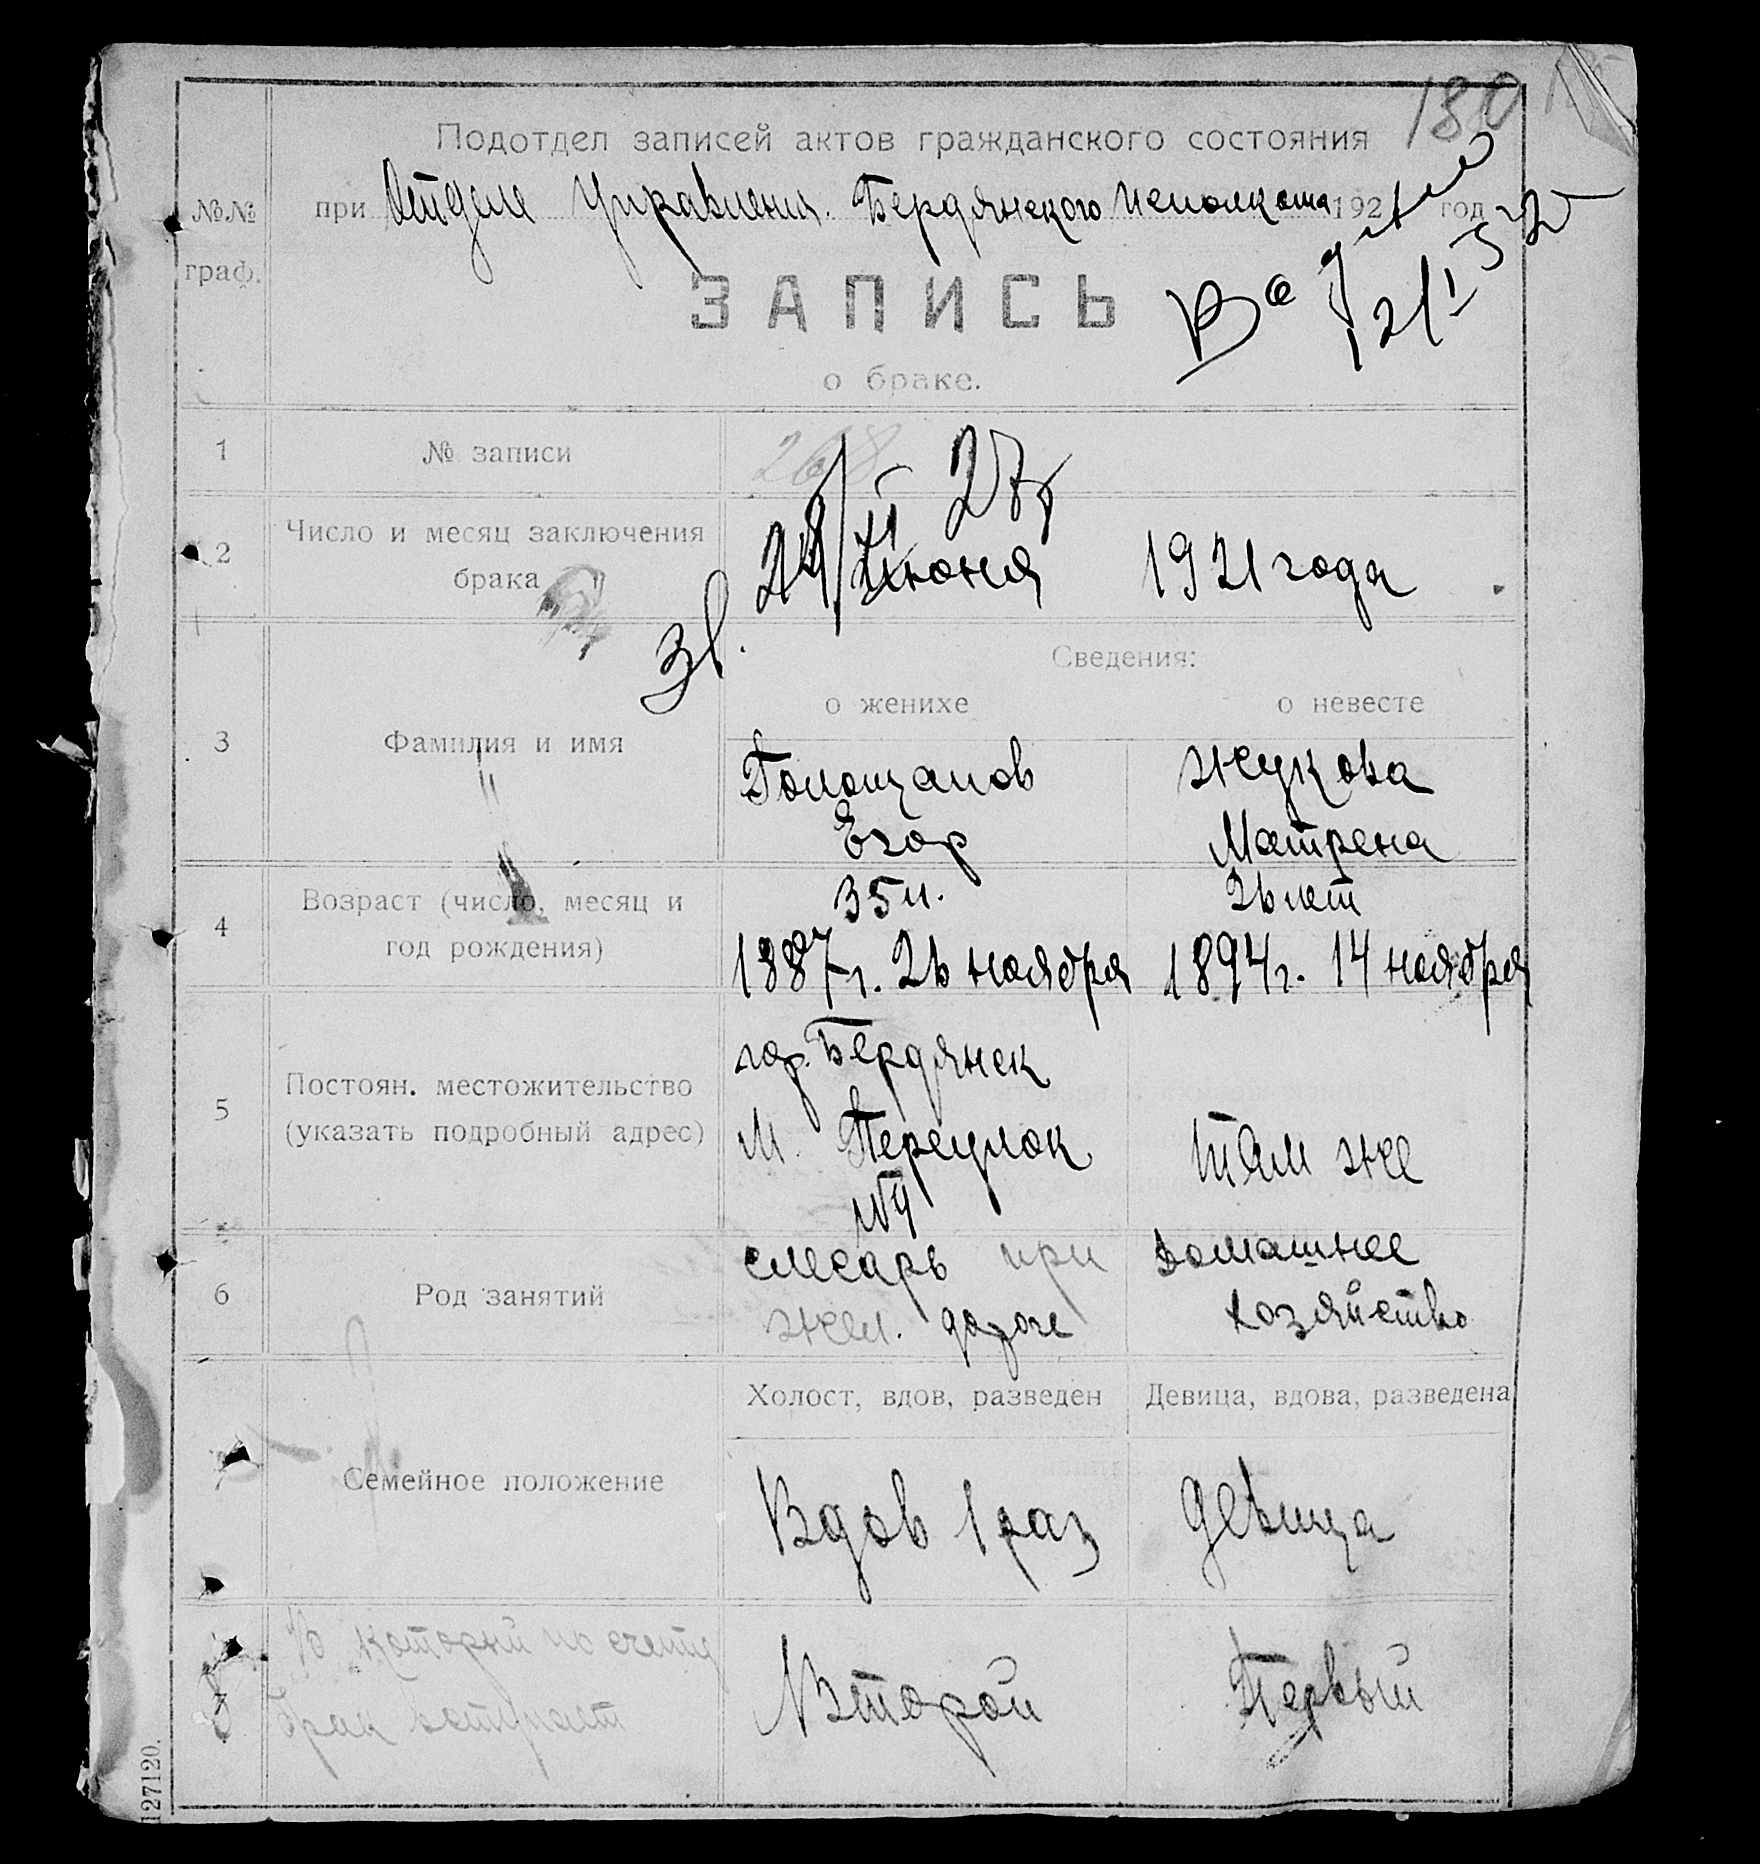 180
Подотдел записей актов гражданского состояния
№№ граф.
при Отделе Управления. Бердянского Исполкома 1921 год
ЗАПИСЬ
о браке.
1 № записи 268
2 Число и месяц заключения брака
24 Июня 1921 года
Сведения:
о женихе о невесте
3 Фамилия и имя
Жукова
Егор Матрена
4 Возраст (число, месяц и год рождения)
35 л. 26 лет
1887 г. 26 ноября 1894 г. 14 ноября
5 Постоян. местожительство (указать подробный адрес)
гор. Бердянск
М. Переулок там же
№4
6 Род занятий
слесарь при домашнее
жел. дороге хозяйство
Холост, вдов, разведен Девица, вдова, разведена
7 Семейное положение
Вдов 1 раз девица
8 В который по счету
брак вступает
Второй Первый
127120.